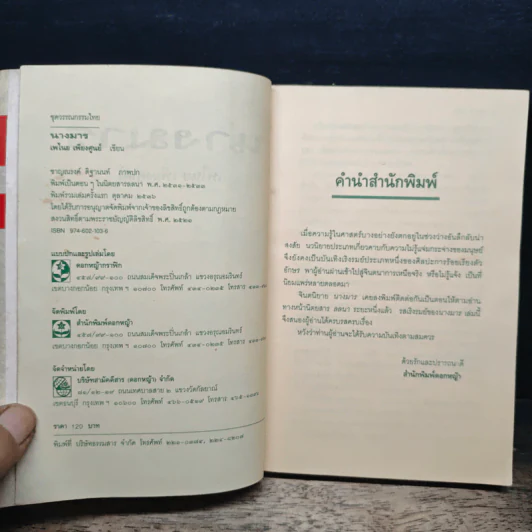 ชุดวรรณกรรมไทย
นางมาร
เพไนย เพียงศูนย์ เขียน
ชาญณรงค์ ดิฐานนท์ ภาพปก
พิมพ์เป็นตอน ๆ ในนิตยสารลลนา พ.ศ.
พิมพ์รวมเล่มครั้งแรก ตุลาคม
โดยได้รับการอนุญาตจัดพิมพ์จากเจ้าของลิขสิทธิ์ถูกต้องตามกฎหมาย
สงวนสิทธิ์ตามพระราชบัญญัติลิขสิทธิ์ พ.ศ. ๒๕๒๑
ISBN
แบบปกและรูปเล่มโดย
ดอกหญ้ากราฟิก
ถนนสมเด็จพระปิ่นเกล้า แขวงอรุณอมรินทร์
เขตบางกอกน้อย กรุงเทพ ฯ ๑๐๗๐๐ โทรศัพท์
จัดพิมพ์โดย
สำนักพิมพ์ดอกหญ้า
ถนนสมเด็จพระปิ่นเกล้า แขวงอรุณอมรินทร์
เขตบางกอกน้อย กรุงเทพ ฯ ๑๐๗๐๐ โทรศัพท์
จัดจำหน่ายโดย
บริษัทสามัคคีสาร (ดอกหญ้า) จำกัด
ถนนเทศบาลสาย ๒ แขวงวัดกัลยาณ์
เขตธนบุรี กรุงเทพ ฯ ๑๐๖๐๐ โทรศัพท์
ราคา 120 บาท
พิมพ์ที่ บริษัทธรรมสาร จำกัด โทรศัพท์
คำนำสำนักพิมพ์
เมื่อความรู้ในศาสตร์บางอย่างยังตกอยู่ในช่วงว่างอันลึกลับน่า
สงสัย นวนิยายประเภทเกี่ยวคาบกับความไม่รู้แจ่มกระจ่างของมนุษย์
จึงยังคงเป็นบันเทิงเริงรมย์ประเภทหนึ่งของศิลปะการร้อยเรียงตัว
อักษร พาผู้อ่านผ่านเข้าไปสู่จินตนาการเหนือจริง หรือไม่รู้แจ้ง เป็นที่
นิยมแพร่หลายตลอดมา
จินตนิยาย นางมาร เคยลงพิมพ์ติดต่อกันเป็นตอนให้ตามอ่าน
ทางหน้านิตยสาร ลลนา ระยะหนึ่งแล้ว รสเริงรมย์ของนางมาร เล่มนี้
จึงสนองผู้อ่านได้ครบรสครบเรื่อง
หวังว่าท่านผู้อ่านจะได้รับความบันเทิงตามสมควร
ด้วยรักและปรารถนาดี
สำนักพิมพ์ดอกหญ้า